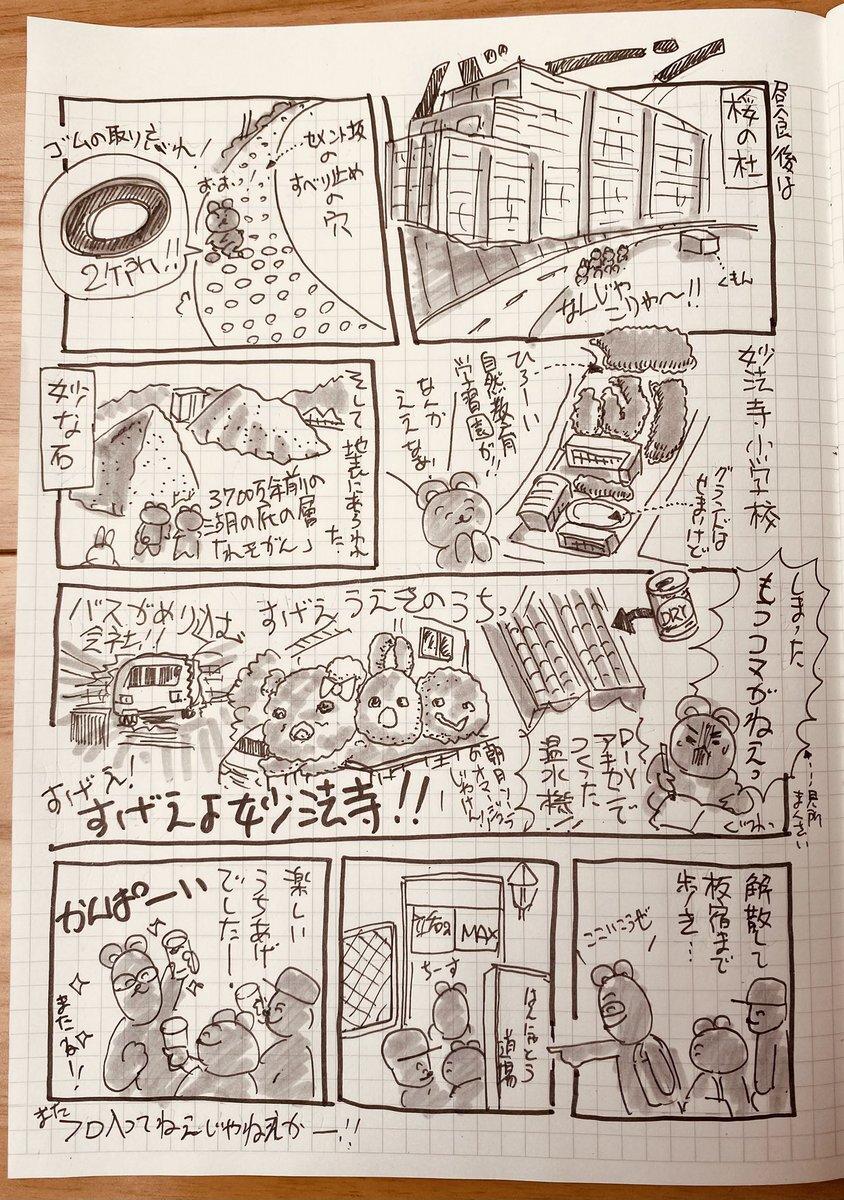 昼食後は
桜の杜
バーン
なんじゃ
こりゃ〜!!
くもん
セメント坂
の
すべり止め
の穴
おおっ!
ゴムの取りさがれ!
2ケ所!!
妙法寺小学校
グランドは
せまいけど
ひろーい
自然教育
学習園が!!
なんか
ええなぁ
そして地表にあらわれ
た
3700万年前の
湖の底の層
「たれそがん」
妙な石
しまった
もうコマがねえっ
……見所
まんさい
DRY
DIY
アキカンで
つくった
温水機!!
すげえ うえきのうちっ
バスがめり込む
会社!!
すげえ!
すげえよ妙法寺!!
解散して
板宿まで
歩き…
ここいこうぜ
MAX
ちーす
道場
楽しい
うちあげ
でしたー!
かんぱーい
またねー!!
また
フロ入ってねえじゃねえかー!!